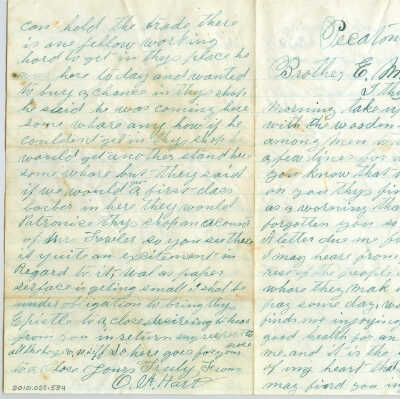 can hold the trade, there
is one fellow working
hard to get in thys place he
was here to day and wanted
to buy a chance in thys shop
he said he was coming here
some whare any how if he
couldent get in thys shop he
would get another stand here
some whare but they said
if we would first class
barber in here they would
Patronise thys shop on account
of Mrs Fowler so you see there
is quite an excitement in
Regard to it, Well as paper
surface is getting small I shal be
under obigation to bring thys
Epistle to a close desireing to hear
from you in return my respects
all the boys so here goes for you
more
to a close Yours Truly From
O. A. Hart
2010.023.584
Pecaton
Brother E. M
I thy
morning take up
with the wooden
among men
a few lines for
you know that
on you thys fin
as a worning tha
forgotten you so
A letter due me f
I may hear from
rest of the people
whare they mak
pay some day, w
finds me injoying
good health for an
me, and it is the
of my heart that
may find you in